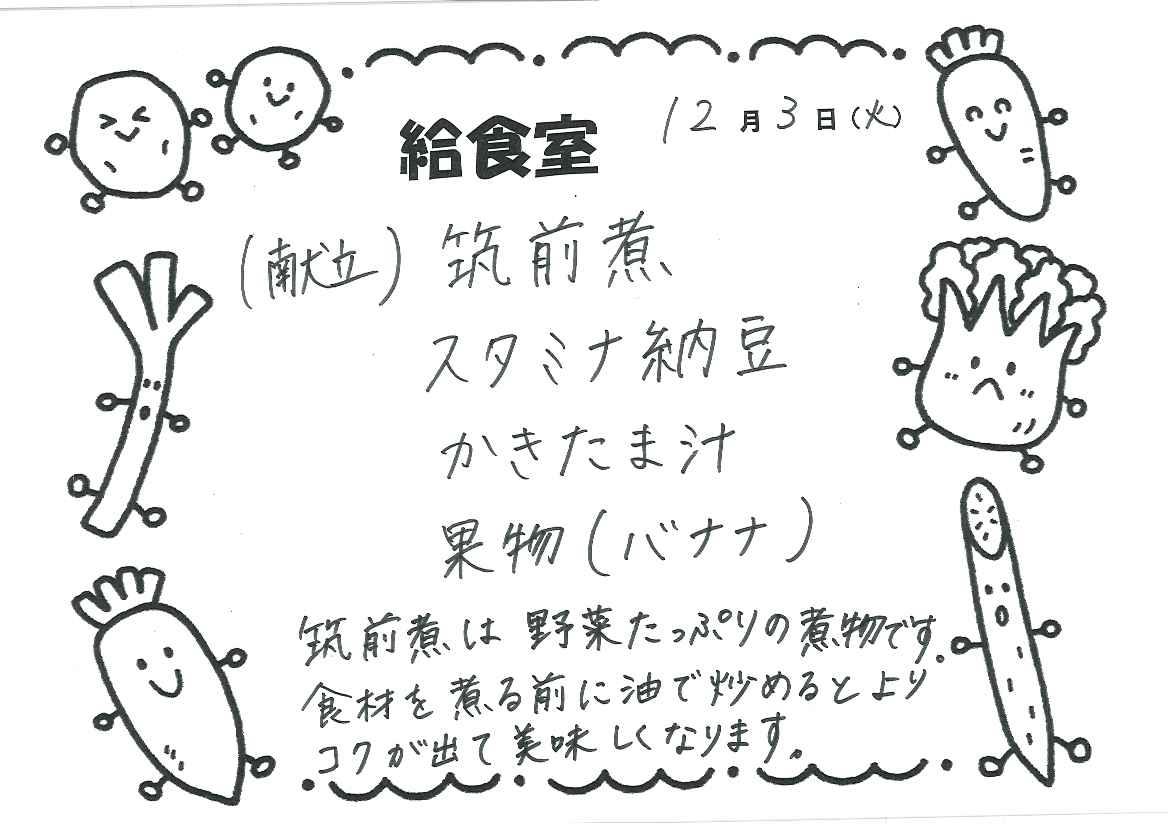 給食室
12月3日(火)
(献立) 筑前煮
スタミナ納豆
かきたま汁
果物(バナナ)
筑前煮は野菜たっぷりの煮物です。
食材を煮る前に油で炒めるとより
コクが出て美味しくなります。